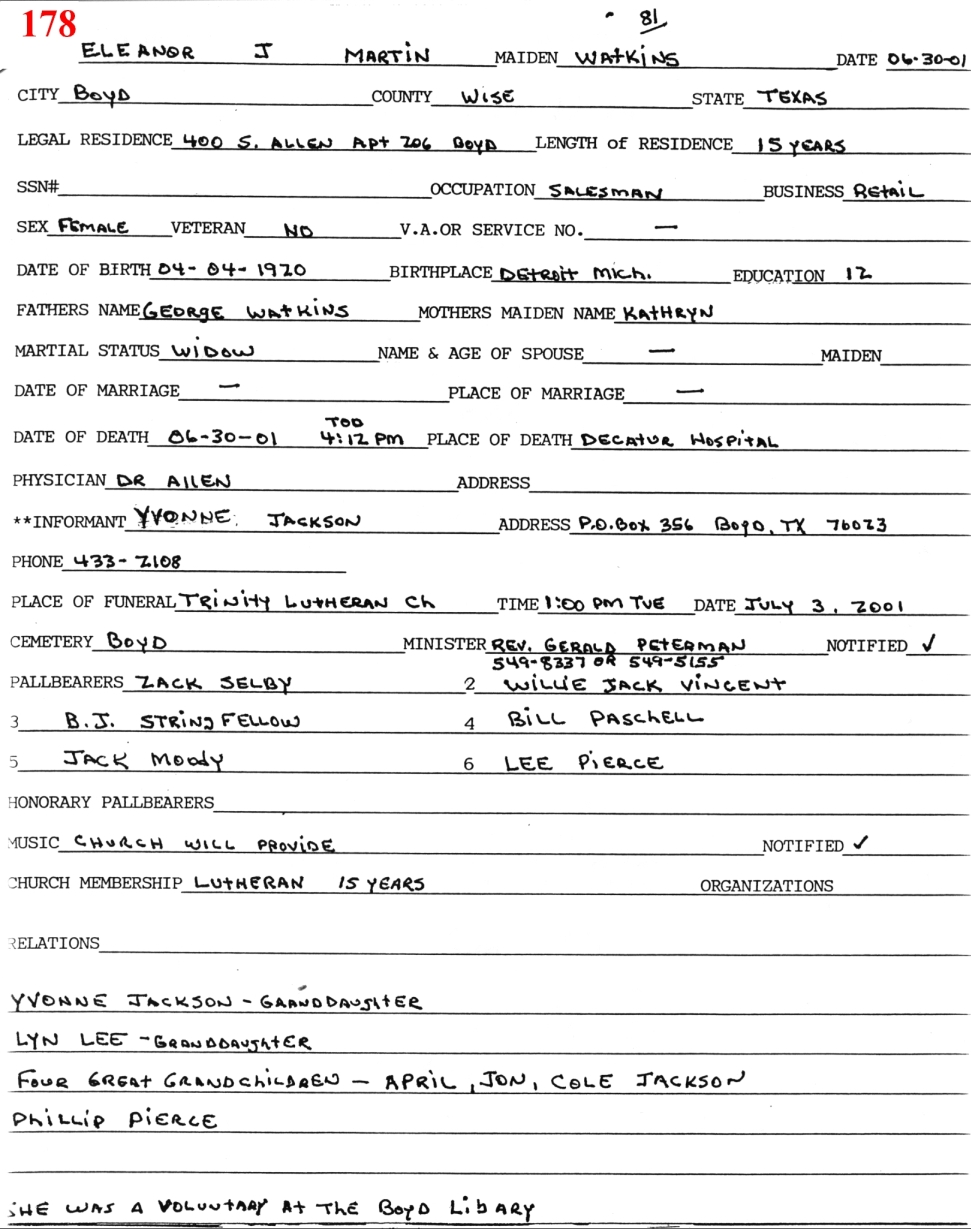 178
81
ELEANOR J MARTIN MAIDEN WATKINS DATE 06-30-01
CITY BOYD COUNTY WISE STATE TEXAS
LEGAL RESIDENCE 400 S. ALLEN APT 206 BOYD LENGTH of RESIDENCE 15 YEARS
SSN# OCCUPATION SALESMAN BUSINESS RETAIL
SEX FEMALE VETERAN NO V.A.OR SERVICE NO. —
DATE OF BIRTH 04-04-1920 BIRTHPLACE DETROIT MICH. EDUCATION 12
FATHERS NAME GEORGE WATKINS MOTHERS MAIDEN NAME KATHRYN
MARTIAL STATUS WIDOW NAME & AGE OF SPOUSE — MAIDEN
DATE OF MARRIAGE — PLACE OF MARRIAGE —
TOD
DATE OF DEATH 06-30-01 4:12 PM PLACE OF DEATH DECATUR HOSPITAL
PHYSICIAN DR ALLEN ADDRESS
**INFORMANT YVONNE JACKSON ADDRESS P.O. BOX 356 BOYD, TX 76023
PHONE 433-2108
PLACE OF FUNERAL TRINITY LUTHERAN CH TIME 1:00 PM TUE DATE JULY 3, 2001
CEMETERY BOYD MINISTER REV. GERALD PETERMAN NOTIFIED ✓
549-8337 OR 549-5155
PALLBEARERS ZACK SELBY 2 WILLIE JACK VINCENT
3 B.J. STRINGFELLOW 4 BILL PASCHELL
5 JACK MOODY 6 LEE PIERCE
HONORARY PALLBEARERS
MUSIC CHURCH WILL PROVIDE NOTIFIED ✓
CHURCH MEMBERSHIP LUTHERAN 15 YEARS ORGANIZATIONS
RELATIONS
YVONNE JACKSON - GRANDDAUGHTER
LYN LEE - GRANDDAUGHTER
FOUR GREAT GRANDCHILDREN - APRIL, JON, COLE JACKSON
PHILLIP PIERCE
SHE WAS A VOLUNTARY AT THE BOYD LIBARY